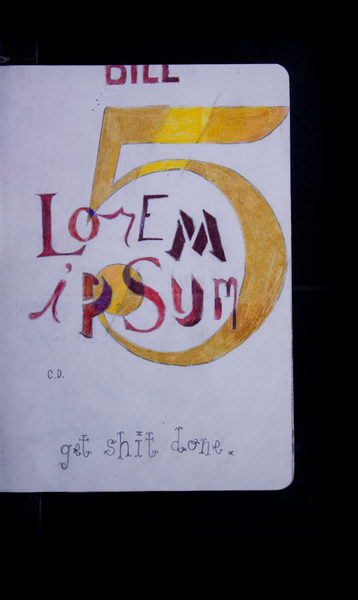 BILL
5
LorEM
ipSum
C.D.
get shit done.